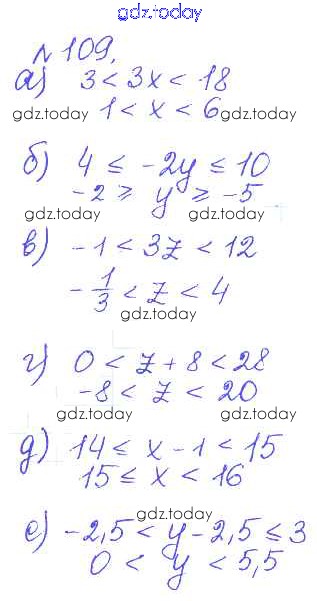 gdz.today
№109.
а) 3 < 3x < 18
gdz.today 1 < x < 6 gdz.today
б) 4 ≤ -2y ≤ 10
-2 ≥ y ≥ -5
gdz.today gdz.today
в) -1 < 3z < 12
-1/3 < z < 4
gdz.today
г) 0 < z + 8 < 28
-8 < z < 20
gdz.today gdz.today
д) 14 ≤ x - 1 < 15
15 ≤ x < 16
gdz.today
е) -2,5 < y - 2,5 ≤ 3
0 < y < 5,5
gdz.today gdz.today